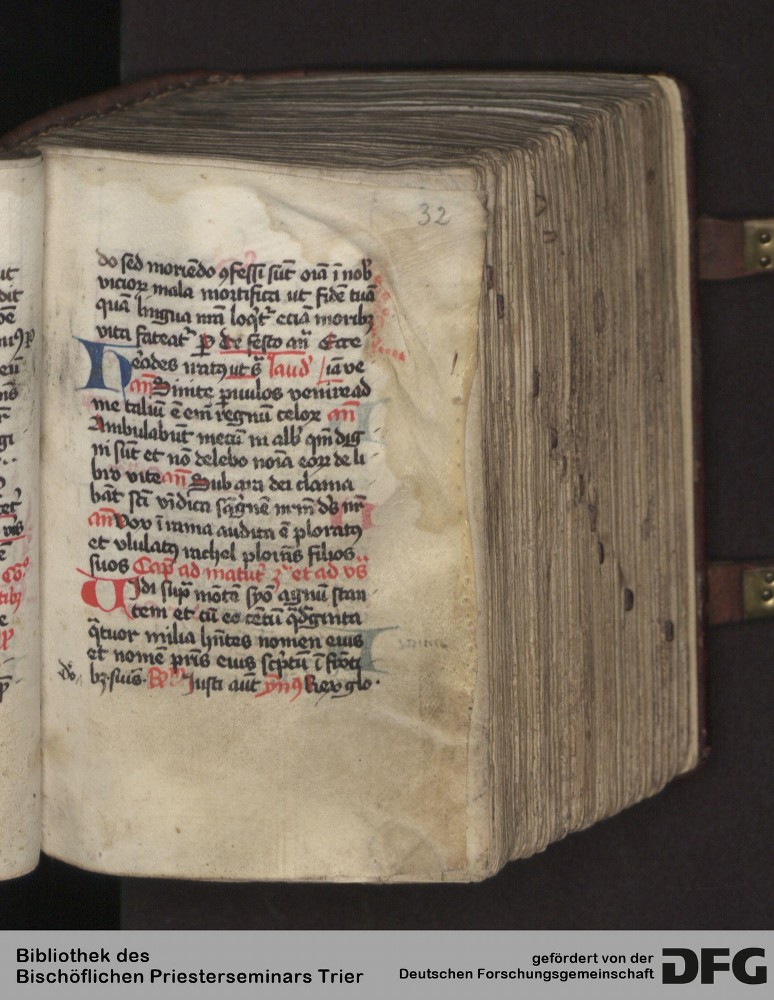 32
do sed moriēdo ꝯfessi sūt oīa ī nob
vicioꝝ mala mortifica ut fidē tuā
quā lingua nr̄a loqͥtʳ eciā moribꝫ
vita fateatʳ de festo an̄ Ecce
Herodes iratꝰ ut sͣ laud Iā ve
an̄ Sinite ꝑvulos venire ad
me taliū ē em̄ regnū celoꝝ an̄
Ambulabūt mecū in alb qm̄ dig
ni sūt et nō delebo noīa eoꝝ de li
bro vite an̄ Sub ara dei clama
bāt sc̄i vīdica sāgͥnē nr̄m dꝰs nr̄
an̄ Vox ī rama audita ē ploratꝰ
et ululatꝰ rachel plorās filios
suos Capͫ ad matutʳ et ad vꝰs
Vidi supͣ mōtē syō agnū stan
tem et cū eo cētū qͣdͣginta
qͣtuor milia hn̄tes nomen eius
et nomē pr̄is eius scͥptū ī frōti
bꝫ suis Iusti aut̄ ymꝰ Rex glo
Bibliothek des
Bischöflichen Priesterseminars Trier
gefördert von der
Deutschen Forschungsgemeinschaft DFG